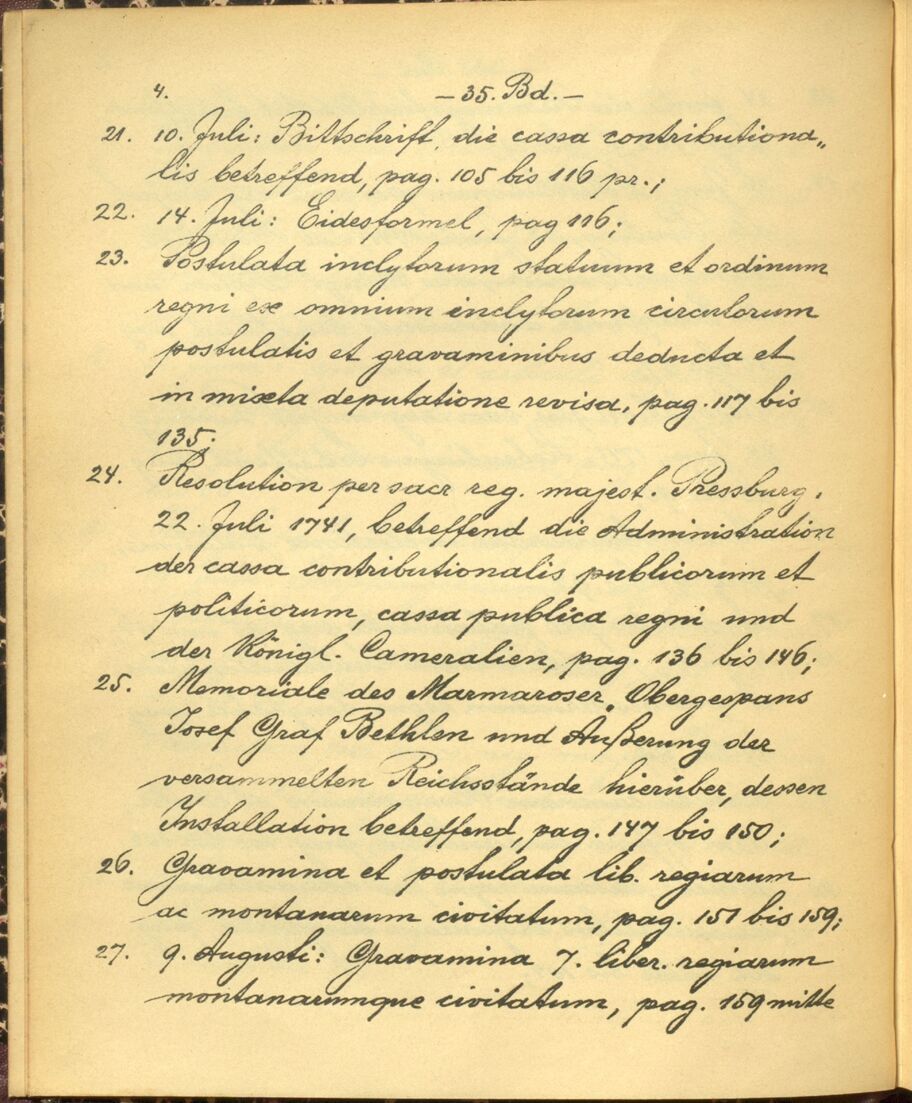 4. – 35. Bd. –
21. 10. Juli: Bittschrift, die cassa contributiona„
lis betreffend, pag. 105 bis 116 pr.;
22. 14. Juli: Eidesformel, pag 116;
23. Postulata inclytorum statuum et ordinum
regni ex omnium inclytorum circulorum
postulatis et gravaminibus deducta et
in mixta deputatione revisa, pag. 117 bis
135;
24. Resolution per sacr reg. majest. Pressburg,
22. Juli 1741, betreffend die Administration
der cassa contributionalis publicorum et
politicorum, cassa publica regni und
der Königl. Cameralien, pag. 136 bis 146;
25. Memoriale des Marmaroser, Obergespans
Josef Graf Bethlen und Außerung der
versammelten Reichsstände hierüber, dessen
Installation betreffend, pag. 147 bis 150;
26. Gravamina et postulata lib. regiarum
ac montanarum civitatum, pag. 151 bis 159;
27. 9. Augusti: Gravamina 7. liber. regiarum
montanarumque civitatum, pag. 159 mitte